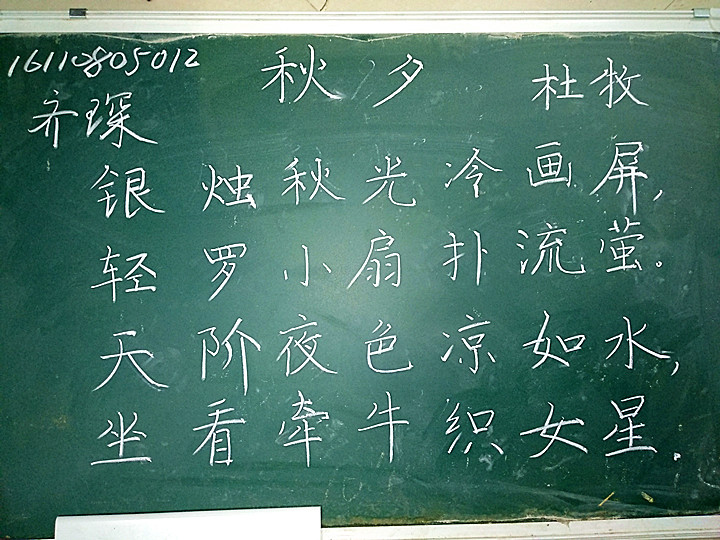 16110805012
齐琛
秋夕 杜牧
银烛秋光冷画屏,
轻罗小扇扑流萤。
天阶夜色凉如水,
坐看牵牛织女星.